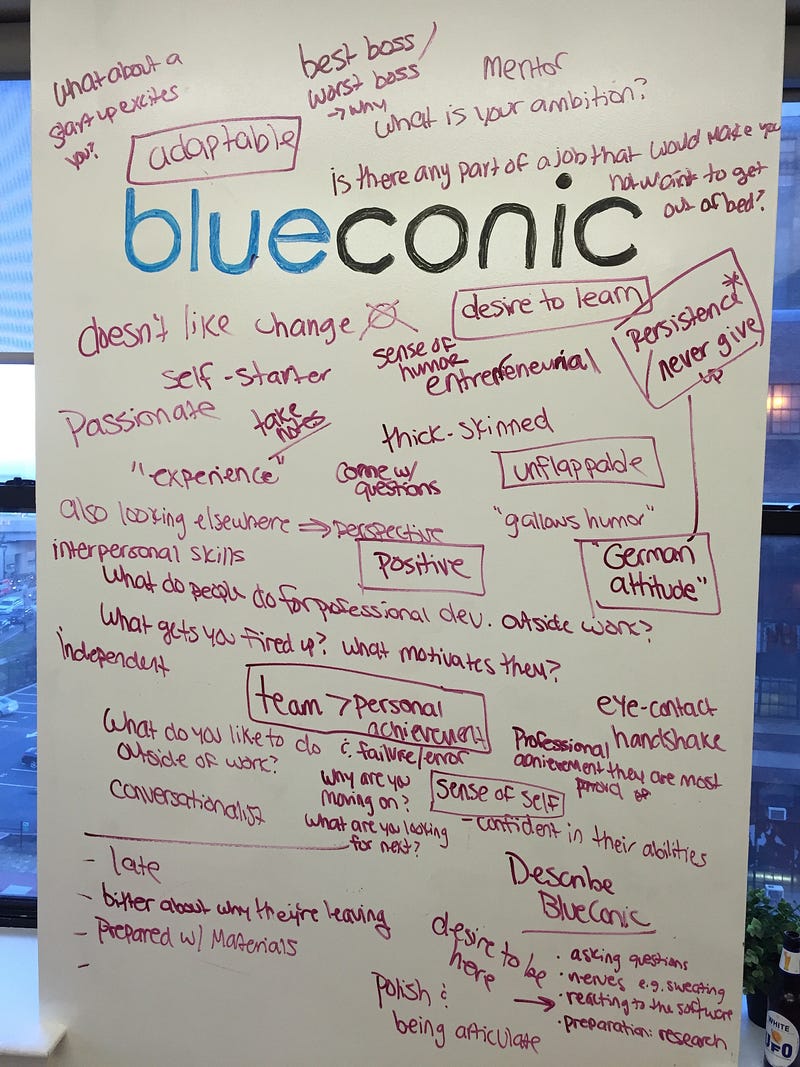 what about a
start up excites
you?
best boss/
worst boss
→ why
Mentor
What is your ambition?
adaptable
is there any part of a job that would make you
not want to get
out of bed?
blueconic
doesn't like change
desire to learn
persistence*
/never give
up
self-starter
sense of
humor
entrepreneurial
Passionate
take
notes
thick-skinned
"experience"
come w/
questions
unflappable
also looking elsewhere ⇒ perspective
"gallows humor"
interpersonal skills
positive
"German
attitude"
What do people do for professional dev. outside work?
What gets you fired up? what motivates them?
independent
team > personal
achievement
& failure/error
eye-contact
handshake
What do you like to do
outside of work?
Professional
achievement they are most
proud of
conversationalist
why are you
moving on?
what are you looking
for next?
sense of self
- confident in their abilities
- late
- bitter about why they're leaving
- Prepared w/ Materials
-
Describe
BlueConic
desire to be
here
→
· asking questions
· nerves e.g. sweating
· reacting to the software
· preparation: research
Polish &
being articulate
WHITE
UFO